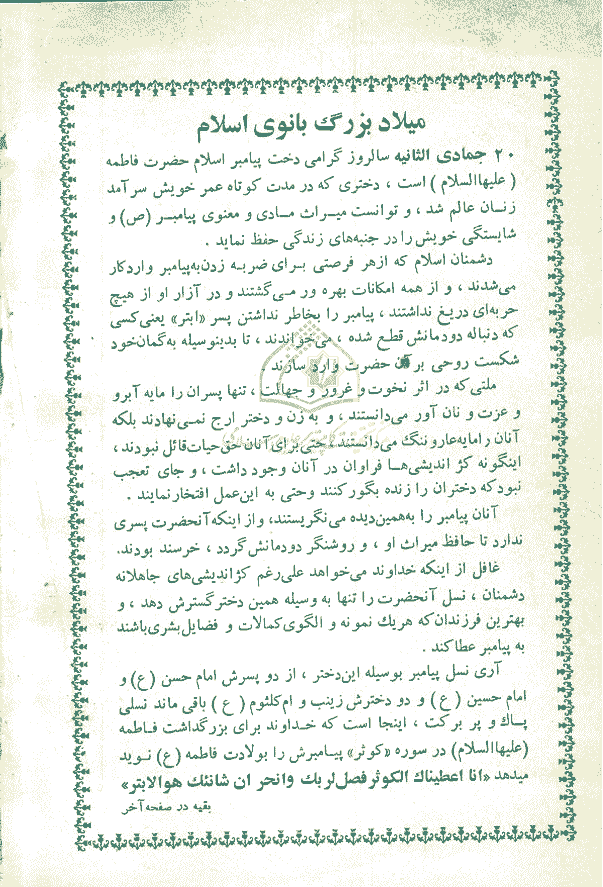 میلاد بزرگ بانوی اسلام
۲۰ جمادی الثانیه سالروز گرامی دخت پیامبر اسلام حضرت فاطمه
(علیهاالسلام) است ، دختری که در مدت کوتاه عمر خویش سرآمد
زنان عالم شد ، و توانست میراث مادی و معنوی پیامبر (ص) و
شایستگی خویش را در جنبه‌های زندگی حفظ نماید .
دشمنان اسلام که ازهر فرصتی برای ضربه زدن‌به‌پیامبر واردکار
می‌شدند ، و از همه امکانات بهره ور می‌گشتند و در آزار او از هیچ
حربه‌ای دریغ نداشتند ، پیامبر را بخاطر نداشتن پسر «ابتر» یعنی‌کسی
که دنباله دودمانش قطع شده ، می‌خواندند ، تا بدینوسیله به‌گمان‌خود
شکست روحی بر آن حضرت وارد سازند
ملتی‌که در اثر نخوت و غرور و جهالت ، تنها پسران را مایه آبرو
و عزت و نان آور می‌دانستند ، و به زن و دختر ارج نمی‌نهادند بلکه
آنان رامایه‌عاروننگ می‌دانستند ، حتی‌برای‌آنان حق‌حیات‌قائل نبودند ،
اینگونه کژ اندیشی‌ها فراوان در آنان وجود داشت ، و جای تعجب
نبودکه دختران را زنده بگورکنند وحتی به این‌عمل افتخارنمایند .
آنان پیامبر را به‌همین‌دیده می‌نگریستند، واز اینکه‌آنحضرت پسری
ندارد تا حافظ میراث او ، و روشنگر دودمانش گردد ، خرسند بودند.
غافل از اینکه خداوند می‌خواهد علی‌رغم کژاندیشی‌های جاهلانه
دشمنان ، نسل آنحضرت را تنها به وسیله همین دخترگسترش دهد ، و
بهترین فرزندان‌که هریك نمونه و الگوی‌کمالات و فضایل‌بشری‌باشند
به پیامبر عطاکند .
آری نسل پیامبر بوسیله این‌دختر ، از دو پسرش امام حسن (ع) و
امام حسین (ع) و دو دخترش زینب و ام‌کلثوم (ع) باقی ماند نسلی
پاك و پر برکت ، اینجا است که خداوند برای بزرگداشت فاطمه
(علیهاالسلام) در سوره «کوثر» پیامبرش را بولادت فاطمه (ع) نوید
میدهد «انا اعطیناك الکوثر فصل لربك وانحر ان شانئك هوالابتر»
بقیه در صفحه آخر